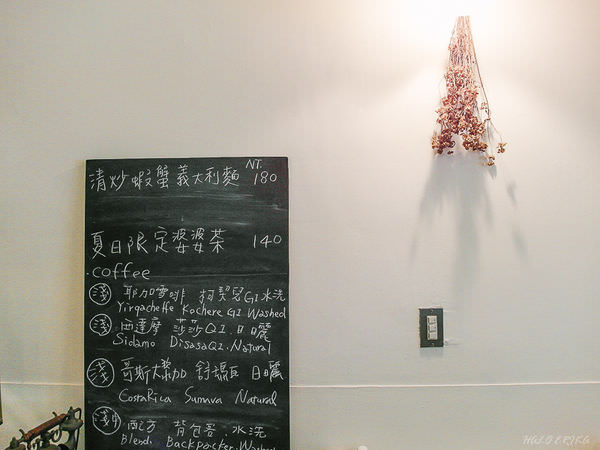 NT.
清炒蝦蟹義大利麵 180
夏日限定婆婆茶 140
.coffee
淺 耶加雪啡 柯契兒G1水洗
Yirgacheffe Kochere G1 Washed
淺 西達摩 莎莎Q1.日曬
Sidamo DisasaQ1.Natural
淺 哥斯大黎加 舒瑪瓦 日曬
CostaRica Sumava Natural
淺中 配方 背包客.水洗
Blend. Backpacker.Washed
HALO ERIKA